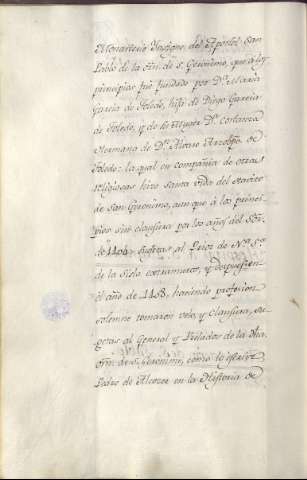 El Monasterio Insigne del Apostol San
Pablo de la Orn. de S. Geronimo, que a los
principios fue fundado por Dª. Maria
Garcia de Toledo, hija de Diego Garcia
de Toledo, y de Dª. Constanza
Hermana de Dn. Alvaro Arzobpo. de
Toledo: la qual en compañia de otras
religiosas hizo santa vida del
de San Geronimo, aunque à los princi
pios sin clausura por los años del Sor.
de 1404. sugetas al Prior de Nª. Sª.
de la Sisla comunmte. y despues en
el año de 1458, haciendo profesion
solemne tomaron velo, y clausura, su
getas al General y Prelados de la dha
Orn. de S. Geronimo, como lo escrive
Pedro de Alcocer en la Historia de